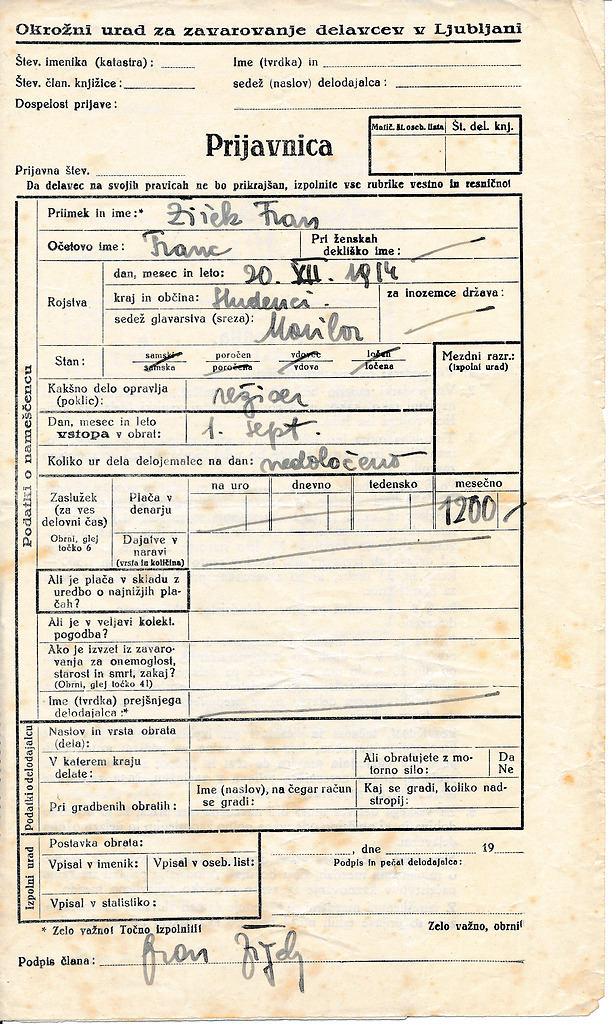 Okrožni urad za zavarovanje delavcev v Ljubljani
Štev. imenika (katastra) :
Ime (tvrdka) in
Štev. član. knjižice :
sedež (naslov) delodajalca :
Dospelost prijave :
Prijavnica
Matič. št. oseb. lista
Št. del. knj.
Prijavna štev.
Da delavec na svojih pravicah ne bo prikrajšan, izpolnite vse rubrike vestno in resnično!
Podatki o nameščencu
Priimek in ime :* Žižek Fran
Očetovo ime : Franc
Pri ženskah dekliško ime :
Rojstva
dan, mesec in leto: 20. XII. 1914
kraj in občina: Studenci.
za inozemce država :
sedež glavarstva (sreza): Maribor
Stan :
samski poročen vdovec ločen
samska poročena vdova ločena
Mezdni razr.:
(izpolni urad)
Kakšno delo opravlja (poklic): režiser
Dan, mesec in leto vstopa v obrat: 1. sept.
Koliko ur dela delojemalec na dan: nedoločeno
Zaslužek (za ves delovni čas)
Obrni, glej točko 6
Plača v denarju
na uro
dnevno
tedensko
mesečno
1200
Dajatve v naravi
(vrsta in količina)
Ali je plača v skladu z uredbo o najnižjih plačah?
Ali je v veljavi kolekt. pogodba?
Ako je izvzet iz zavarovanja za onemoglost, starost in smrt, zakaj?
(Obrni, glej točko 4!)
Ime (tvrdka) prejšnjega delodajalca :*
Podatki o delodajalcu
Naslov in vrsta obrata (dela):
V katerem kraju delate:
Ali obratujete z motorno silo:
Da
Ne
Pri gradbenih obratih :
Ime (naslov), na čegar račun se gradi:
Kaj se gradi, koliko nadstropij:
Izpolni urad
Postavka obrata:
Vpisal v imenik:
Vpisal v oseb. list:
Vpisal v statistiko :
, dne 19
Podpis in pečat delodajalca:
* Zelo važno! Točno izpolniti!
Zelo važno, obrni!
Podpis člana: Fran Žižek